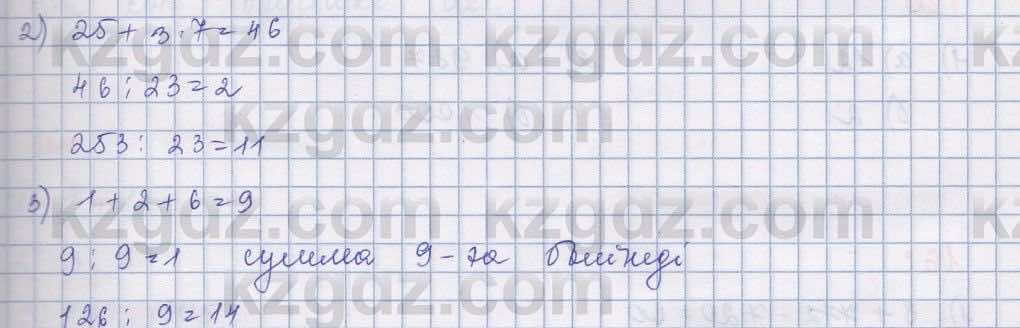 2) 25 + 3 · 7 = 46
46 : 23 = 2
253 : 23 = 11
3) 1 + 2 + 6 = 9
9 : 9 = 1 сумма 9-ға бөлінеді
126 : 9 = 14
kzgdz.com
kzgdz.com
kzgdz.com
kzgdz.com